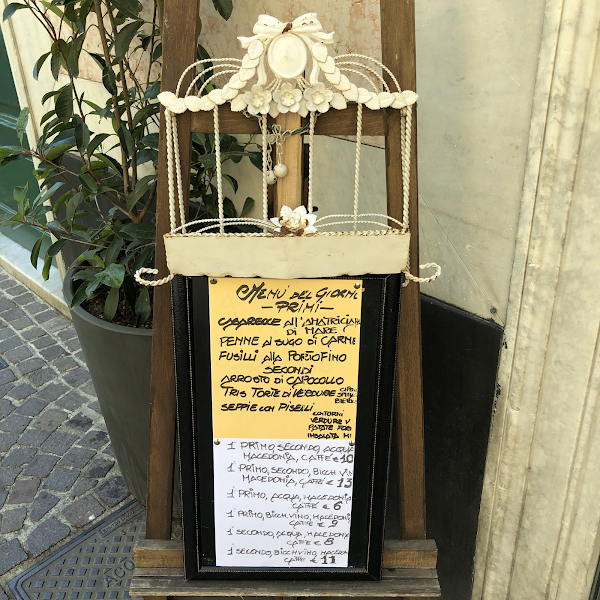 MENU' DEL GIORN
- PRIMI -
CASARECCE all'AMATRICIAN
DI MARE
PENNE al SUGO DI CARNE
FUSILLI alla PORTOFINO
SECONDI
ARROSTO DI CAPOCOLLO
TRIS TORTE DI VERDURE CIPO
BIETO
SEPPIE con PISELLI
CONTORNI
VERDURE V
PATATE FOR
INSALATA MI
1 PRIMO, SECONDO, ACQUA
MACEDONIA, CAFFE' € 10
1 PRIMO, SECONDO, BICCH. VIN
MACEDONIA, CAFFE' € 13
1 PRIMO, ACQUA, MACEDONIA
CAFFE € 6
1 PRIMO, BICCH. VINO, MACEDONI
CAFFE € 9
1 SECONDO, ACQUA, MACEDONIA
CAFFE € 8
1 SECONDO, BICCH VINO, MACEDONI
CAFFE € 11